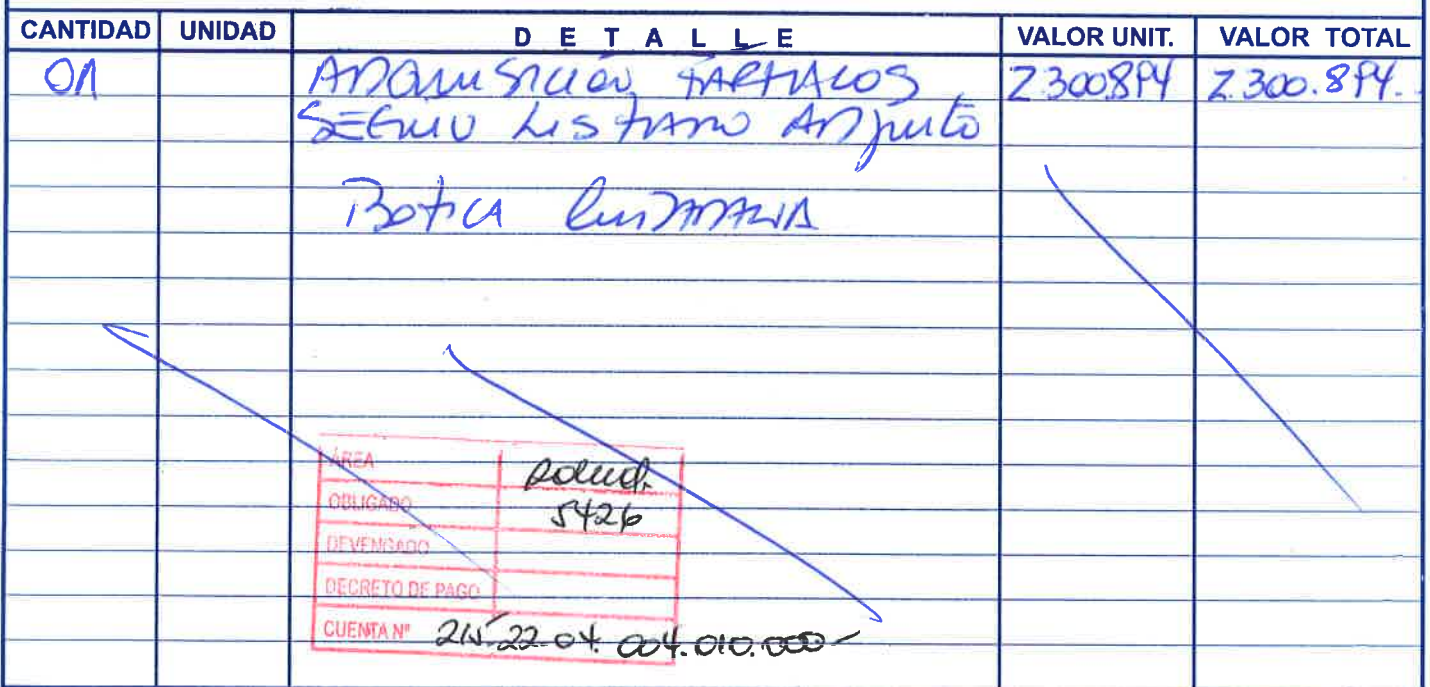 CANTIDAD UNIDAD DETALLE VALOR UNIT. VALOR TOTAL
01 ADQUISICIÓN FARMACOS 2.300.894 2.300.894.-
SEGUN LISTADO ADJUNTO
BOTICA CIUDADANA
ÁREA Salud.
OBLIGADO 5426
DEVENGADO
DECRETO DE PAGO
CUENTA Nº 215.22.04.004.010.000-